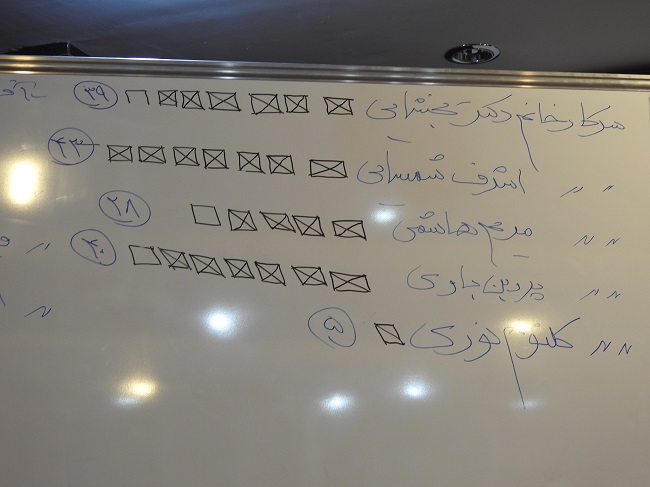 سرکار خانم دکتر بخشایی ۳۹
〃 〃 اشرف شمسایی ۴۳
〃 〃 مریم هاشمی ۲۸
〃 〃 پروین جاوی ۴۰
〃 〃 کلثوم نوری ۵